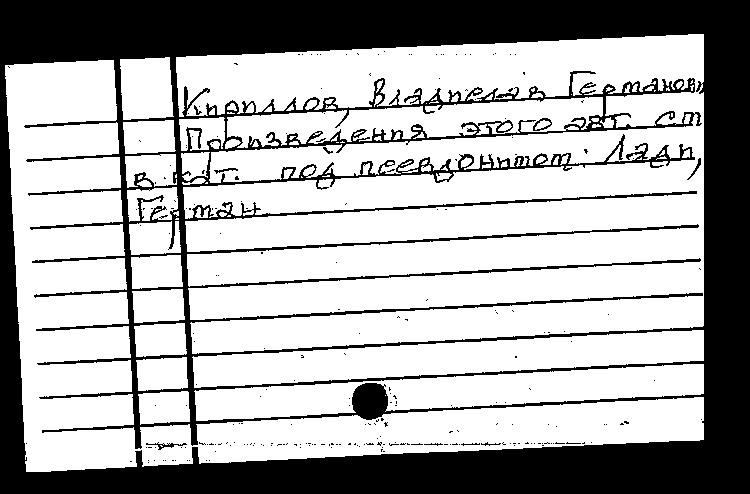 Кириллов, Владислав Германови
Произведения этого авт. см
в кат. под псевдонимом: Лади,
Герман.